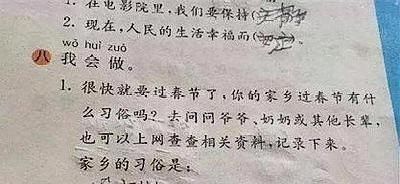 1. 在电影院里,我们要保持(安静
2. 现在,人民的生活幸福而(安定)。
wǒ huì zuò
八 我会做。
1. 很快就要过春节了,你的家乡过春节有什
么习俗吗?去问问爷爷、奶奶或其他长辈,
也可以上网查查相关资料,记录下来。
家乡的习俗是: